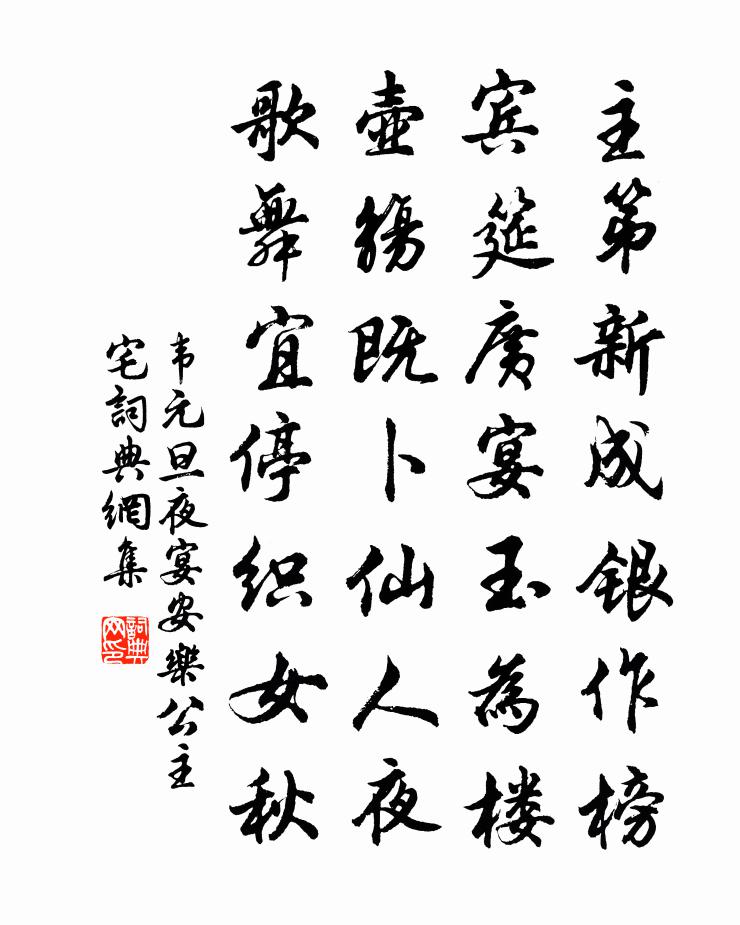 主第新成银作榜
宾筵广宴玉為楼
壶觴既卜仙人夜
歌舞宜停织女秋
韦元旦夜宴安樂公主
宅詞典網集
詞典网印